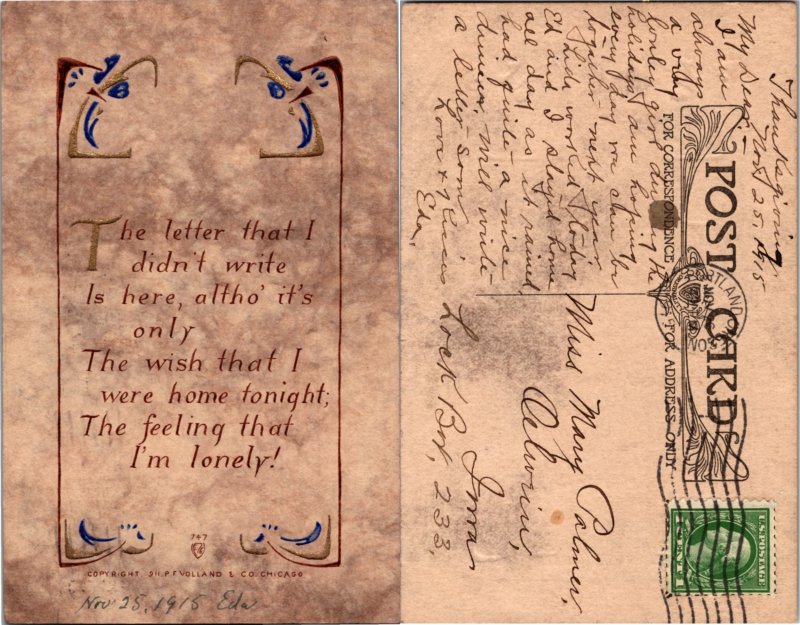 The letter that I
didn't write
Is here, altho' it's
only
The wish that I
were home tonight;
The feeling that
I'm lonely!
747
COPYRIGHT 1911 P.F. VOLLAND & CO. CHICAGO
Nov 25, 1915 Eda
POST CARD
FOR CORRESPONDENCE
FOR ADDRESS ONLY
PORTLAND
NOV
U.S. POSTAGE
Thanksgiving
Nov 25, 1915
My Dear:-
I am
always
a very
lonley girl on the
holidays, am hoping
every day we can be
together next year
this world. Today
Ed and I stayed home
all day as it rained
had quite a nice
dinner, will write
a letter soon
Love & kisses
Eda,
Miss Mary Palmer,
Oelwein,
Iowa
Lock Box, 233,